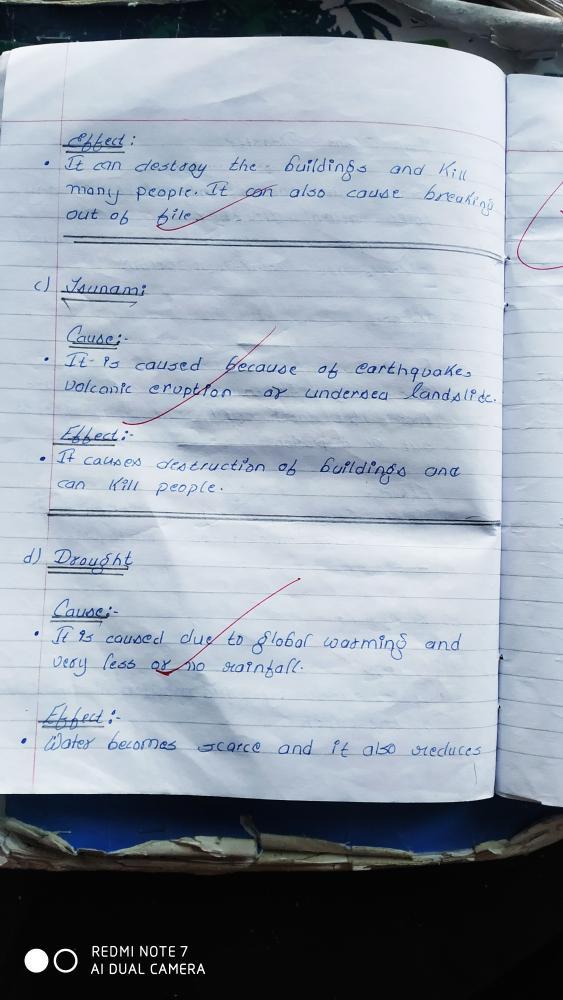 Effect:
• It can destroy the buildings and kill
many people. It can also cause breaking
out of file.
c) Tsunami
Cause:-
• It is caused because of earthquake,
volcanic eruption or undersea landslide.
Effect:-
• It causes destruction of buildings and
can kill people.
d) Drought
Cause:-
• It is caused due to global warming and
very less or no rainfall.
Effect:-
• Water becomes scarce and it also reduces
REDMI NOTE 7
AI DUAL CAMERA